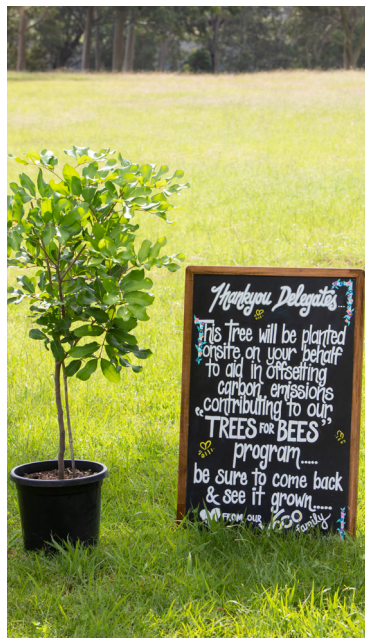 Thankyou Delegates...
This Tree will be planted
onsite on your behalf
to aid in offsetting
carbon emissions
contributing to our
"TREES FOR BEES"
program.....
be sure to come back
& see it grown.....
FROM OUR family